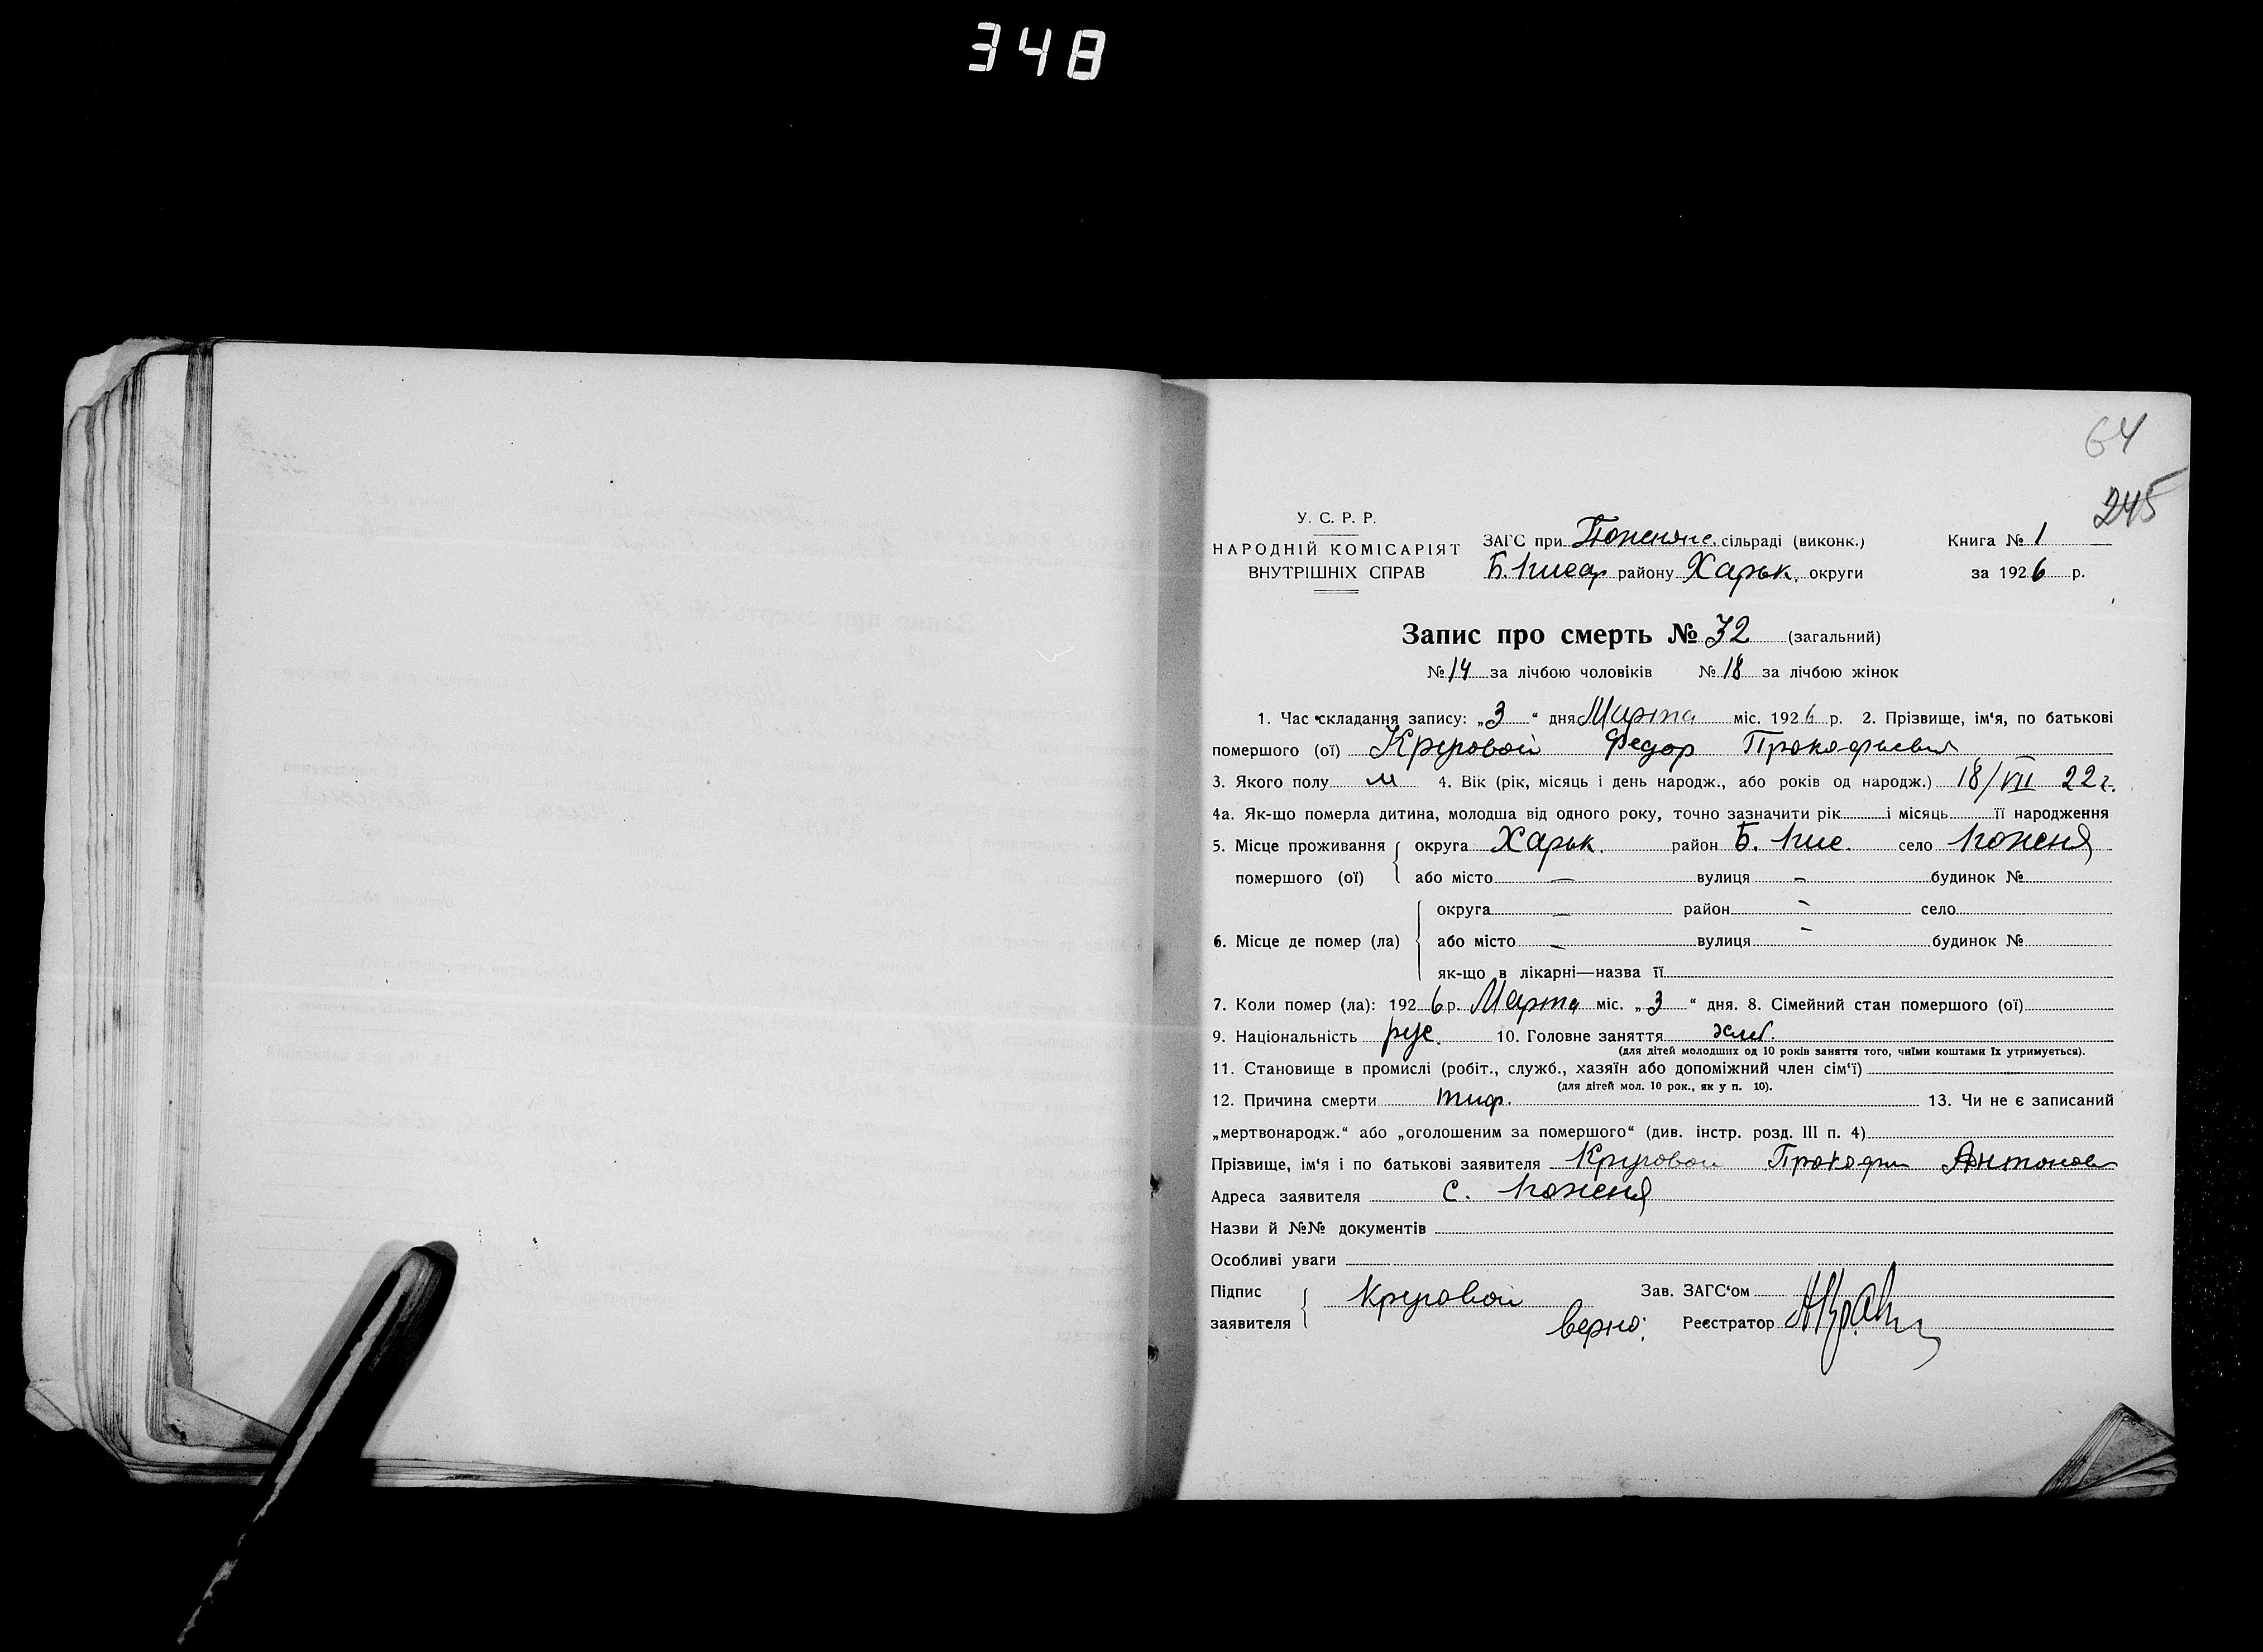 348
64
245
У. С. Р. Р.
НАРОДНІЙ КОМІСАРІЯТ
ВНУТРІШНІХ СПРАВ
ЗАГС при сільраді (виконк.)
Б. Писар району Харьк. округи
Книга № 1
за 1926 р.
Запис про смерть № 32 (загальний)
№ 14 за лічбою чоловіків № 18 за лічбою жінок
1. Час складання запису: „3“ дня Марта міс. 1926 р. 2. Прізвище, ім‘я, по батькові
помершого (ої) Круговой Федор Прокофьевич
3. Якого полу м 4. Вік (рік, місяць і день народж., або років од народж.) 18/VII 22 г.
4а. Як-що померла дитина, молодша від одного року, точно зазначити рік і місяць її народження
5. Місце проживання помершого (ої) округа Харьк. район Б. Пис. село Поженя
або місто — вулиця — будинок №
6. Місце де помер (ла) округа — район — село
або місто — вулиця — будинок №
як-що в лікарні—назва її
7. Коли помер (ла): 1926 р. Марта міс. „3“ дня. 8. Сімейний стан помершого (ої)
9. Національність рус. 10. Головне заняття хлеб.
(для дітей молодших од 10 років заняття того, чиїми коштами їх утримується).
11. Становище в промислі (робіт., служб., хазяїн або допоміжний член сім‘ї)
(для дітей мол. 10 рок., як у п. 10).
12. Причина смерти тиф. 13. Чи не є записаний
„мертвонародж.“ або „оголошеним за помершого“ (див. інстр. розд. III п. 4)
Прізвище, ім‘я і по батькові заявителя Круговой Прокофи Антонов
Адреса заявителя с. Поженя
Назви й №№ документів
Особливі уваги
Підпис заявителя Круговой Зав. ЗАГС‘ом
верно: Реєстратор